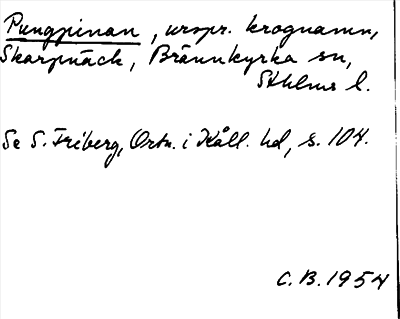 Pungpinan, urspr. krognamn,
Skarpnäck, Brännkyrka sn,
Sthlms l.
Se S. Friberg, Ortn. i Kåll. hd, s. 104.
C.B. 1954